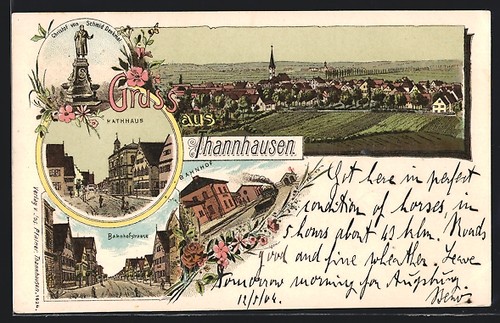 Christof von Schmid Denkmal
Gruss
aus
Thannhausen.
RATHHAUS
BAHNHOF
Bahnhofstrasse
Got here in perfect
condition of horses, in
5 hours about 45 klm. Roads
good and fine wheather. Leave
Tomorrow morning for Augsburg.
12/5/04.